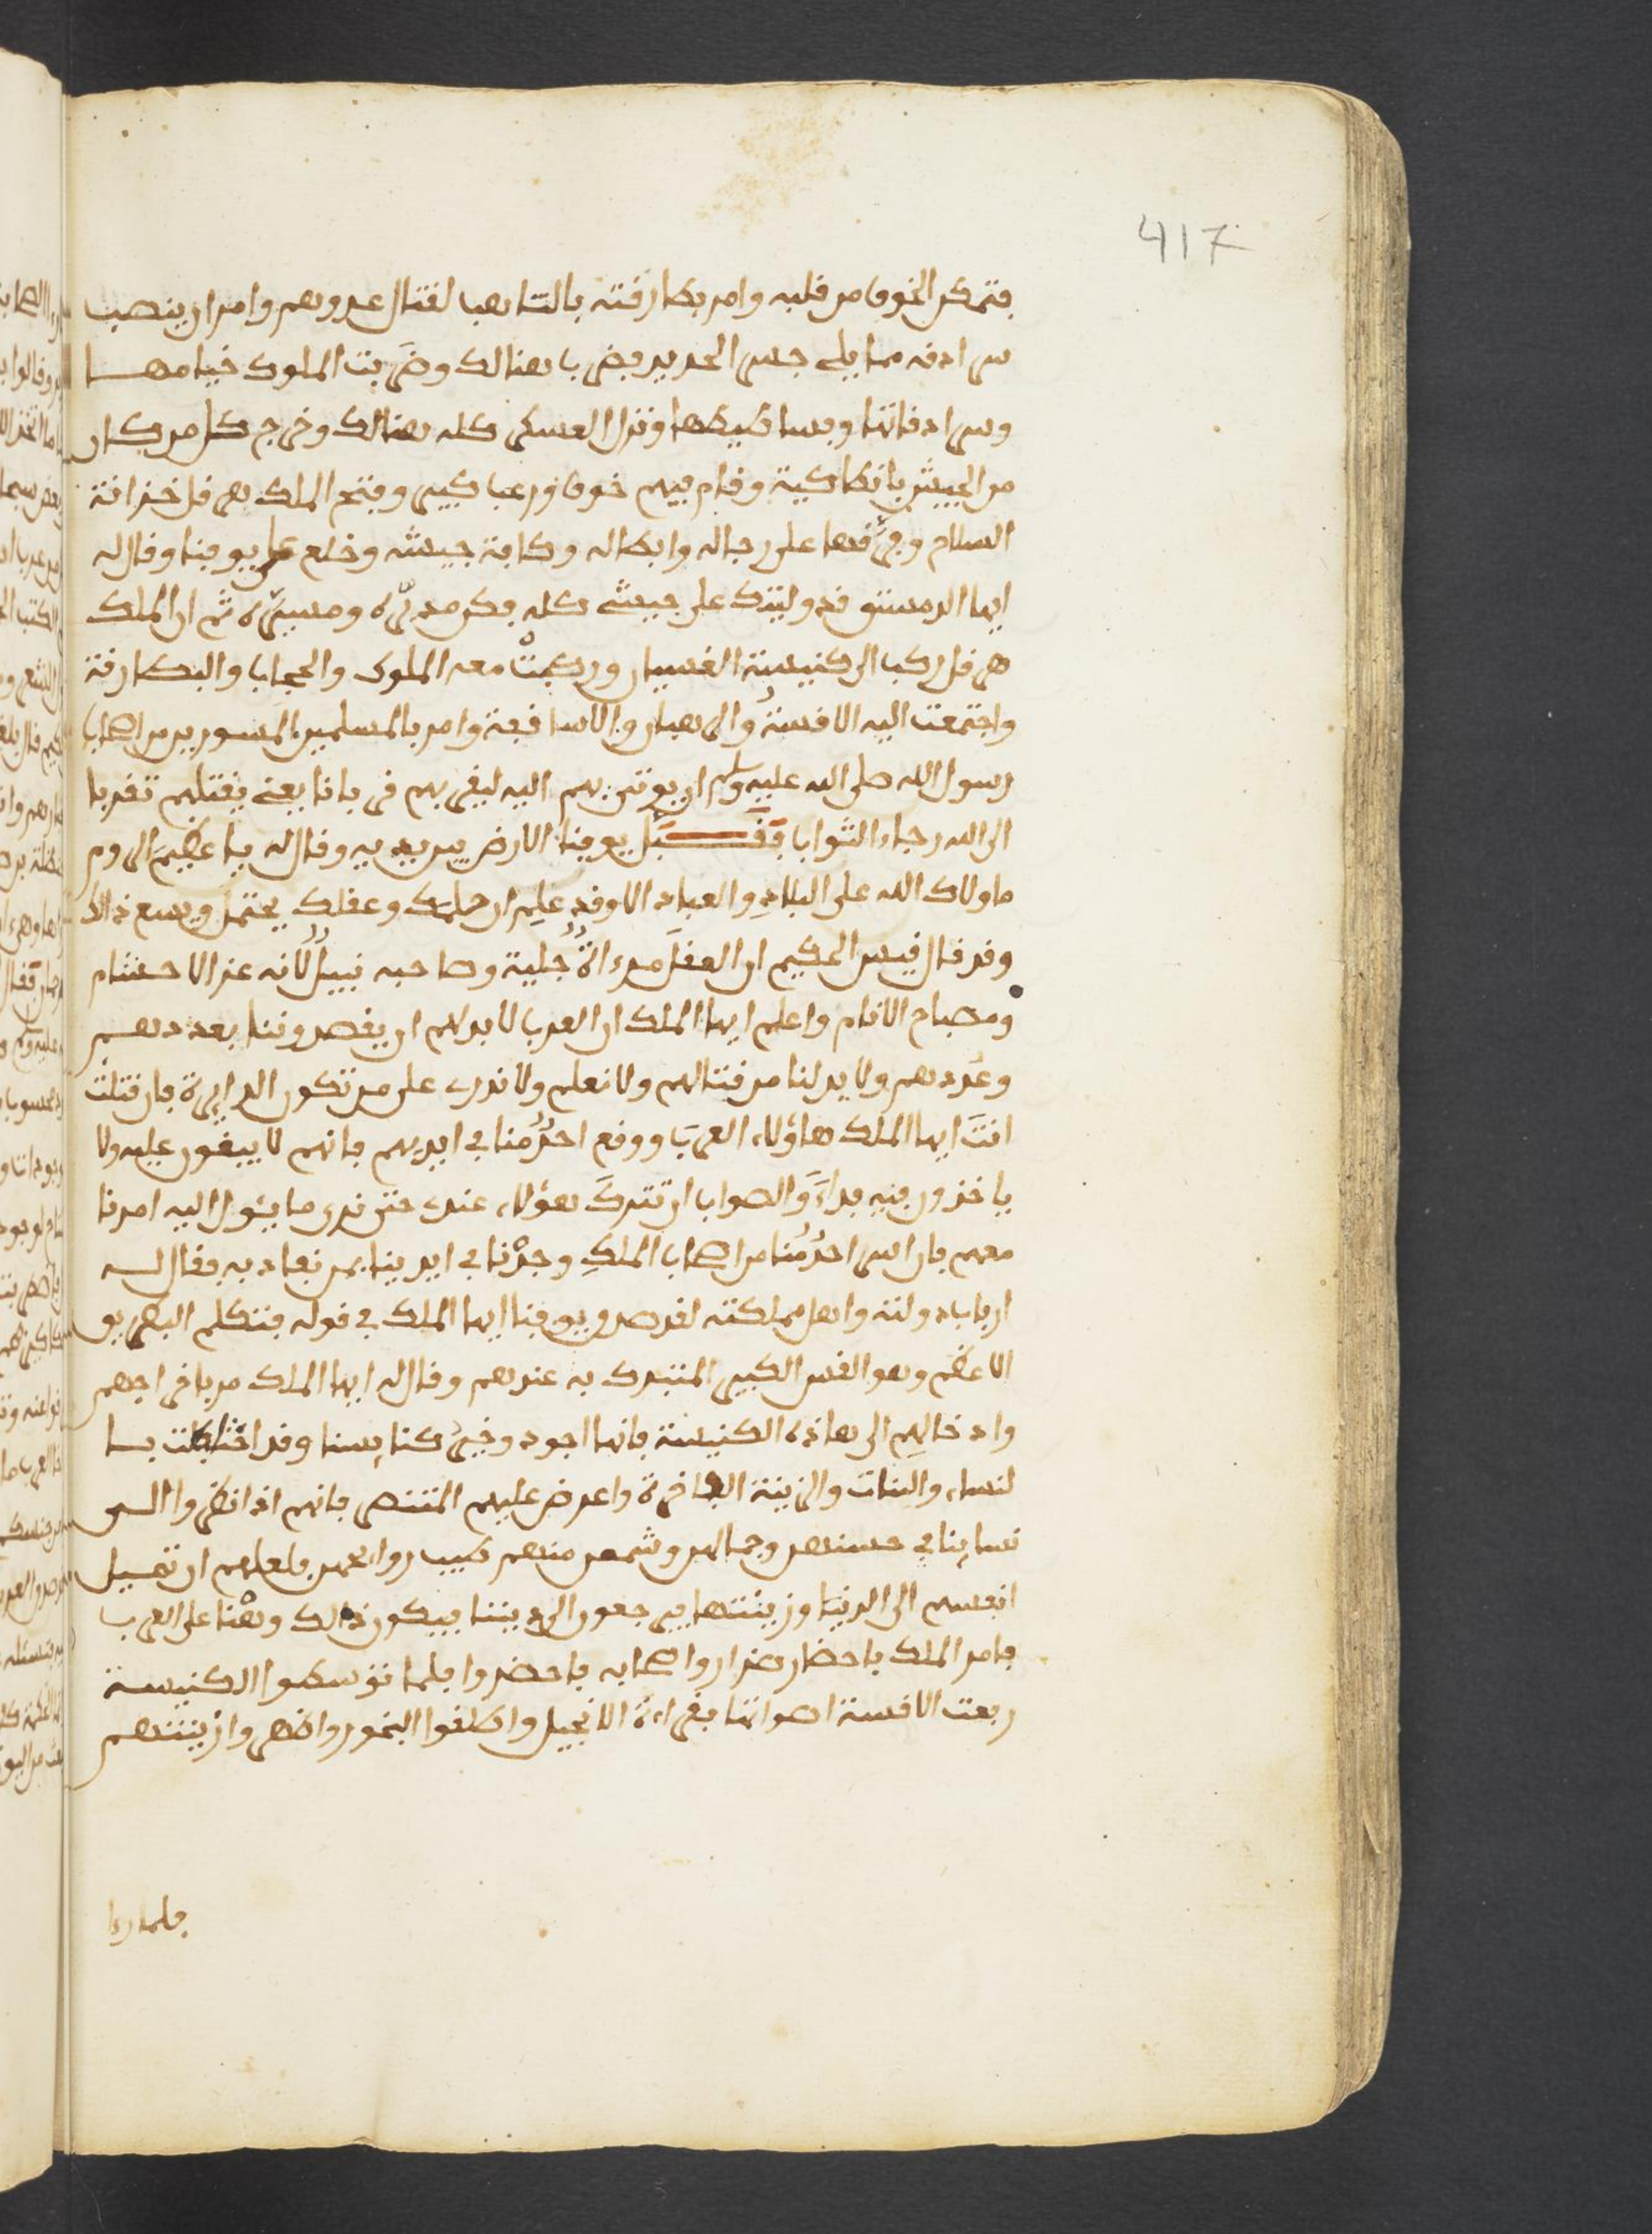 417
فتمكن الخوف من قلبه وامر بطارقته بالتاهب لقتال عدوهم وامر ان ينصب
سرادقه مما يلي جسر الحديد فضربا هنالك وضَربت الملوك خيامها
وسرادقاتها وبساطيطها ونزل العسكر كله هنالك وخرج كل من كان
من الجيش بانطاكية وقام فيهم خوف ورعب كبير وفتح الملك هرقل خزانة
السلاح وفرَّقها على رجاله وابطاله وكافة جيشه وخلع على يوقنا وقال له
ايها الدمستق قد وليتك على جيشي كله فكن مدبّره ومسيّره ثم ان الملك
هرقل ركب الى كنيسة القسيان وركبتْ معه الملوك والحجاب والبطارقة
واجتمعت اليه الاقسةُ والرهبان والاساقفة وامر بالمسلمين المسورين من اصحاب
رسول الله صلى الله عليه وسلم ان يوتى بهم اليه ليقربهم قربانا يعني يقتلهم تقربا
الى الله رجاء الثواب فَقَبَّل يوقنا الارض بين يديه وقال له يا عظيمَ الروم
ما ولاك الله على البلادِ والعباد الا وقد علِم ان حلمك وعقلك يحتمل ويسع ذالك
وقد قال قيس الحكيم ان العقلَ مرءاةٌ جلية وصاحبه نبيلٌ لانه عز الاحتشام
ومصباح الانام واعلم ايها الملك ان العرب لابد لهم ان يقصدوننا بعددهم
وعُددهم ولا بد لنا من قتالهم ولا نعلم ولا ندري على من تكون الدايرة فان قتلت
انتَ ايها الملك هاؤلاء العربَ ووقع احدٌ منا في ايديهم فانهم لا يبقون عليه ولا
ياخذون فيه فداءً والصواب ان تتركَ هؤلاء عندك حتى ندري ما يئول اليه امرنا
معهم فان اسر احدٌ منا من اصحاب الملكِ وجدْنا في ايدينا من نفاد به فقال له
ارباب دولته واهل مملكته لقد صدق يوقنا ايها الملك في قوله فتكلم البطريق
الاعظم وهو القس الكبير المتبرك به عندهم وقال له ايها الملك مر باخراجهم
وادخالِهم الى هاذه الكنيسة فانها اجود وخيرُ كنايسنا وقد اختلطت بسا
لنساء والبنات والزينة الفاخرة واعرض عليهم التنصر فانهم اذا نظروا الى
نساينا في حسنهن وجمالهن وشمو منهم طيب روايحهن فلعلهم ان تميل
انفسهم الى الدنيا وزينتها فيرجعون الى ديننا فيكون ذالك وهْنا على العرب
فامر الملك باحضار ضرار واصحابه فاحضروا فلما توسطوا الكنيسة
رفعت الاقسة اصواتها بقراءة الانجيل واطلقوا البخور واظهروا زينتهم
فلما راوا